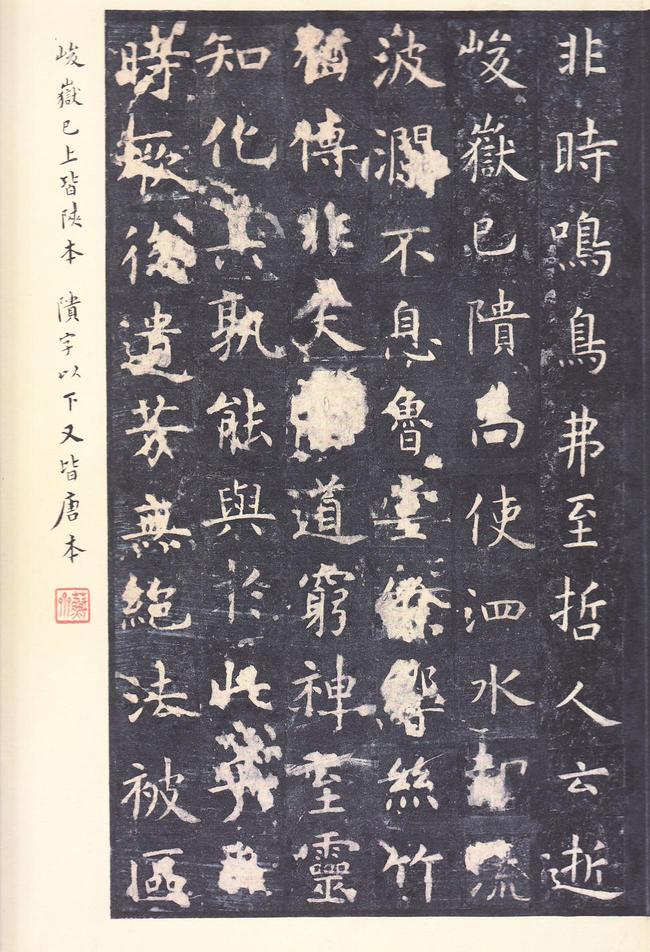 非時鳴鳥弗至哲人云逝
峻嶽已隤尚使泗水却流
波瀾不息魯堂餘響絲竹
猶傳非夫道窮神至靈
知化其孰能與於此乎
時厥後遺芳無絕法被區
峻嶽已上皆陝本 隤字以下又皆唐本